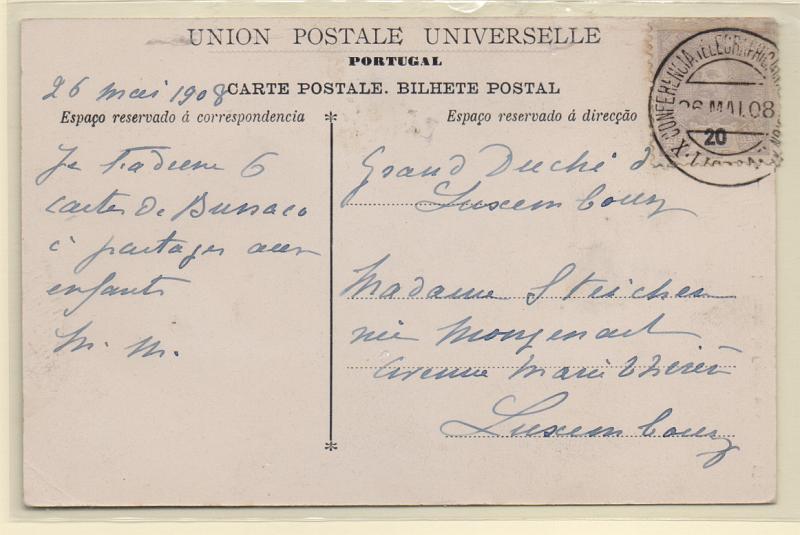 UNION POSTALE UNIVERSELLE
PORTUGAL
CARTE POSTALE. BILHETE POSTAL
Espaço reservado á correspondencia
Espaço reservado á direcção
26 mai 1908
Je t'adresse 6
cartes de Bussaco
à partager aux
enfants
M. M.
Grand Duché d
Luxembourg
Madame Steichen
née Mongenast
Avenue Marie Thérèse
Luxembourg
X CONFERENCIA TELEGRAPHICA
26 MAI. 08
20